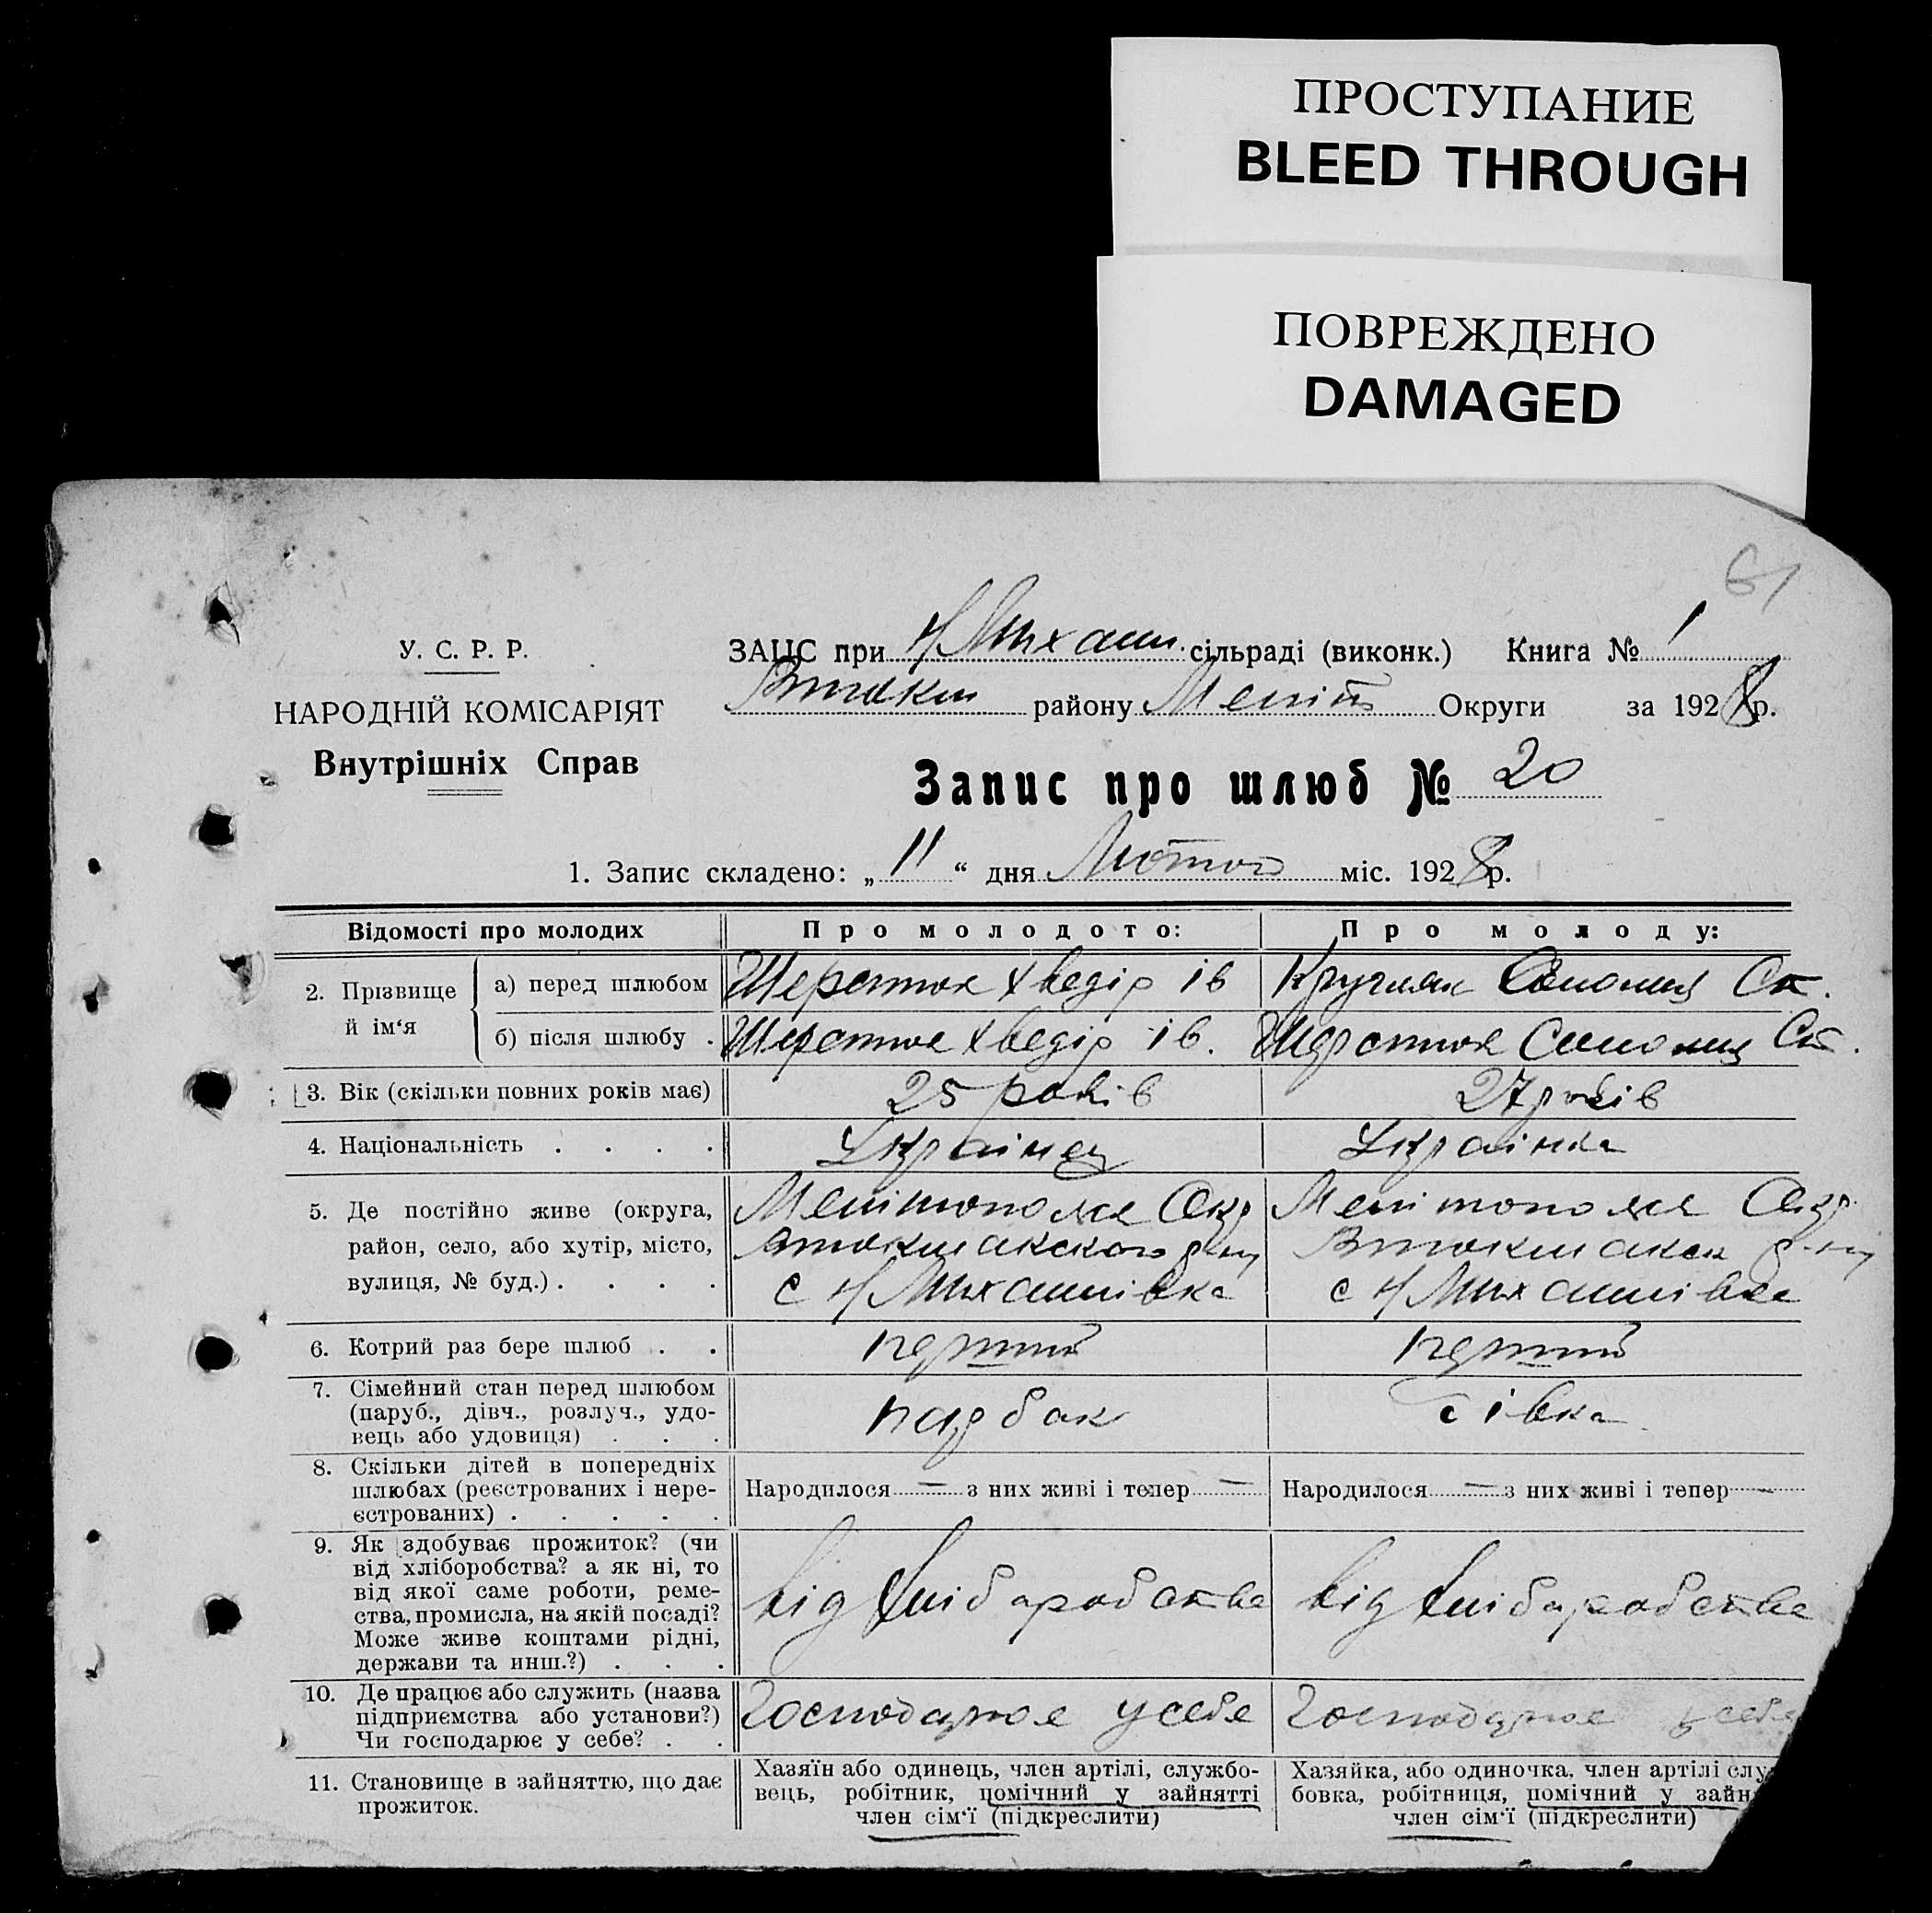 ПРОСТУПАНИЕ
BLEED THROUGH
ПОВРЕЖДЕНО
DAMAGED
61
У. С. Р. Р.
НАРОДНІЙ КОМІСАРІЯТ
Внутрішніх Справ
ЗАЦС при Н/Михайл. сільраді (виконк.) Книга № 1
Втокм району Меліт Округи за 1928 р.
Запис про шлюб № 20
1. Запис складено: „ 11 “ дня Лютого міс. 1928 р.
Відомості про молодих
Про молодого:
Про молоду:
2. Прізвище й ім‘я
а) перед шлюбом
Шерстюк Хведір Ів
Кругляк Соломия Ст.
б) після шлюбу .
Шерстюк Хведір Ів.
Шерстюк Соломия Ст.
3. Вік (скільки повних років має)
25 років
27 років
4. Національність . . . .
Українец
Українка
5. Де постійно живе (округа,
район, село, або хутір, місто,
вулиця, № буд.) . . . .
Мелітополск Окр
Втокмакского р-ну
с Н/Михайлівка
Мелітополск Окр
Втокмакск р-ну
с Н/Михайлівка
6. Котрий раз бере шлюб . .
перший
перший
7. Сімейний стан перед шлюбом
(паруб., дівч., розлуч., удо-
вець або удовиця) . . .
парубак
дівка
8. Скільки дітей в попередніх
шлюбах (реєстрованих і нере-
єстрованих) . . . . .
Народилося — з них живі і тепер —
Народилося — з них живі і тепер —
9. Як здобуває прожиток? (чи
від хліборобства? а як ні, то
від якої саме роботи, реме-
ства, промисла, на якій посаді?
Може живе коштами рідні,
держави та инш.?) . . .
від хліборобства
від хліборобства
10. Де працює або служить (назва
підприємства або установи?)
Чи господарює у себе? . .
Господарює у себе
Господарює у себе
11. Становище в зайняттю, що дає
прожиток.
Хазяїн або одинець, член артілі, службо-
вець, робітник, помічний у зайнятті
член сім‘ї (підкреслити)
Хазяйка, або одиночка, член артілі слу
бовка, робітниця, помічний у зайн
член сім‘ї (підкреслити)